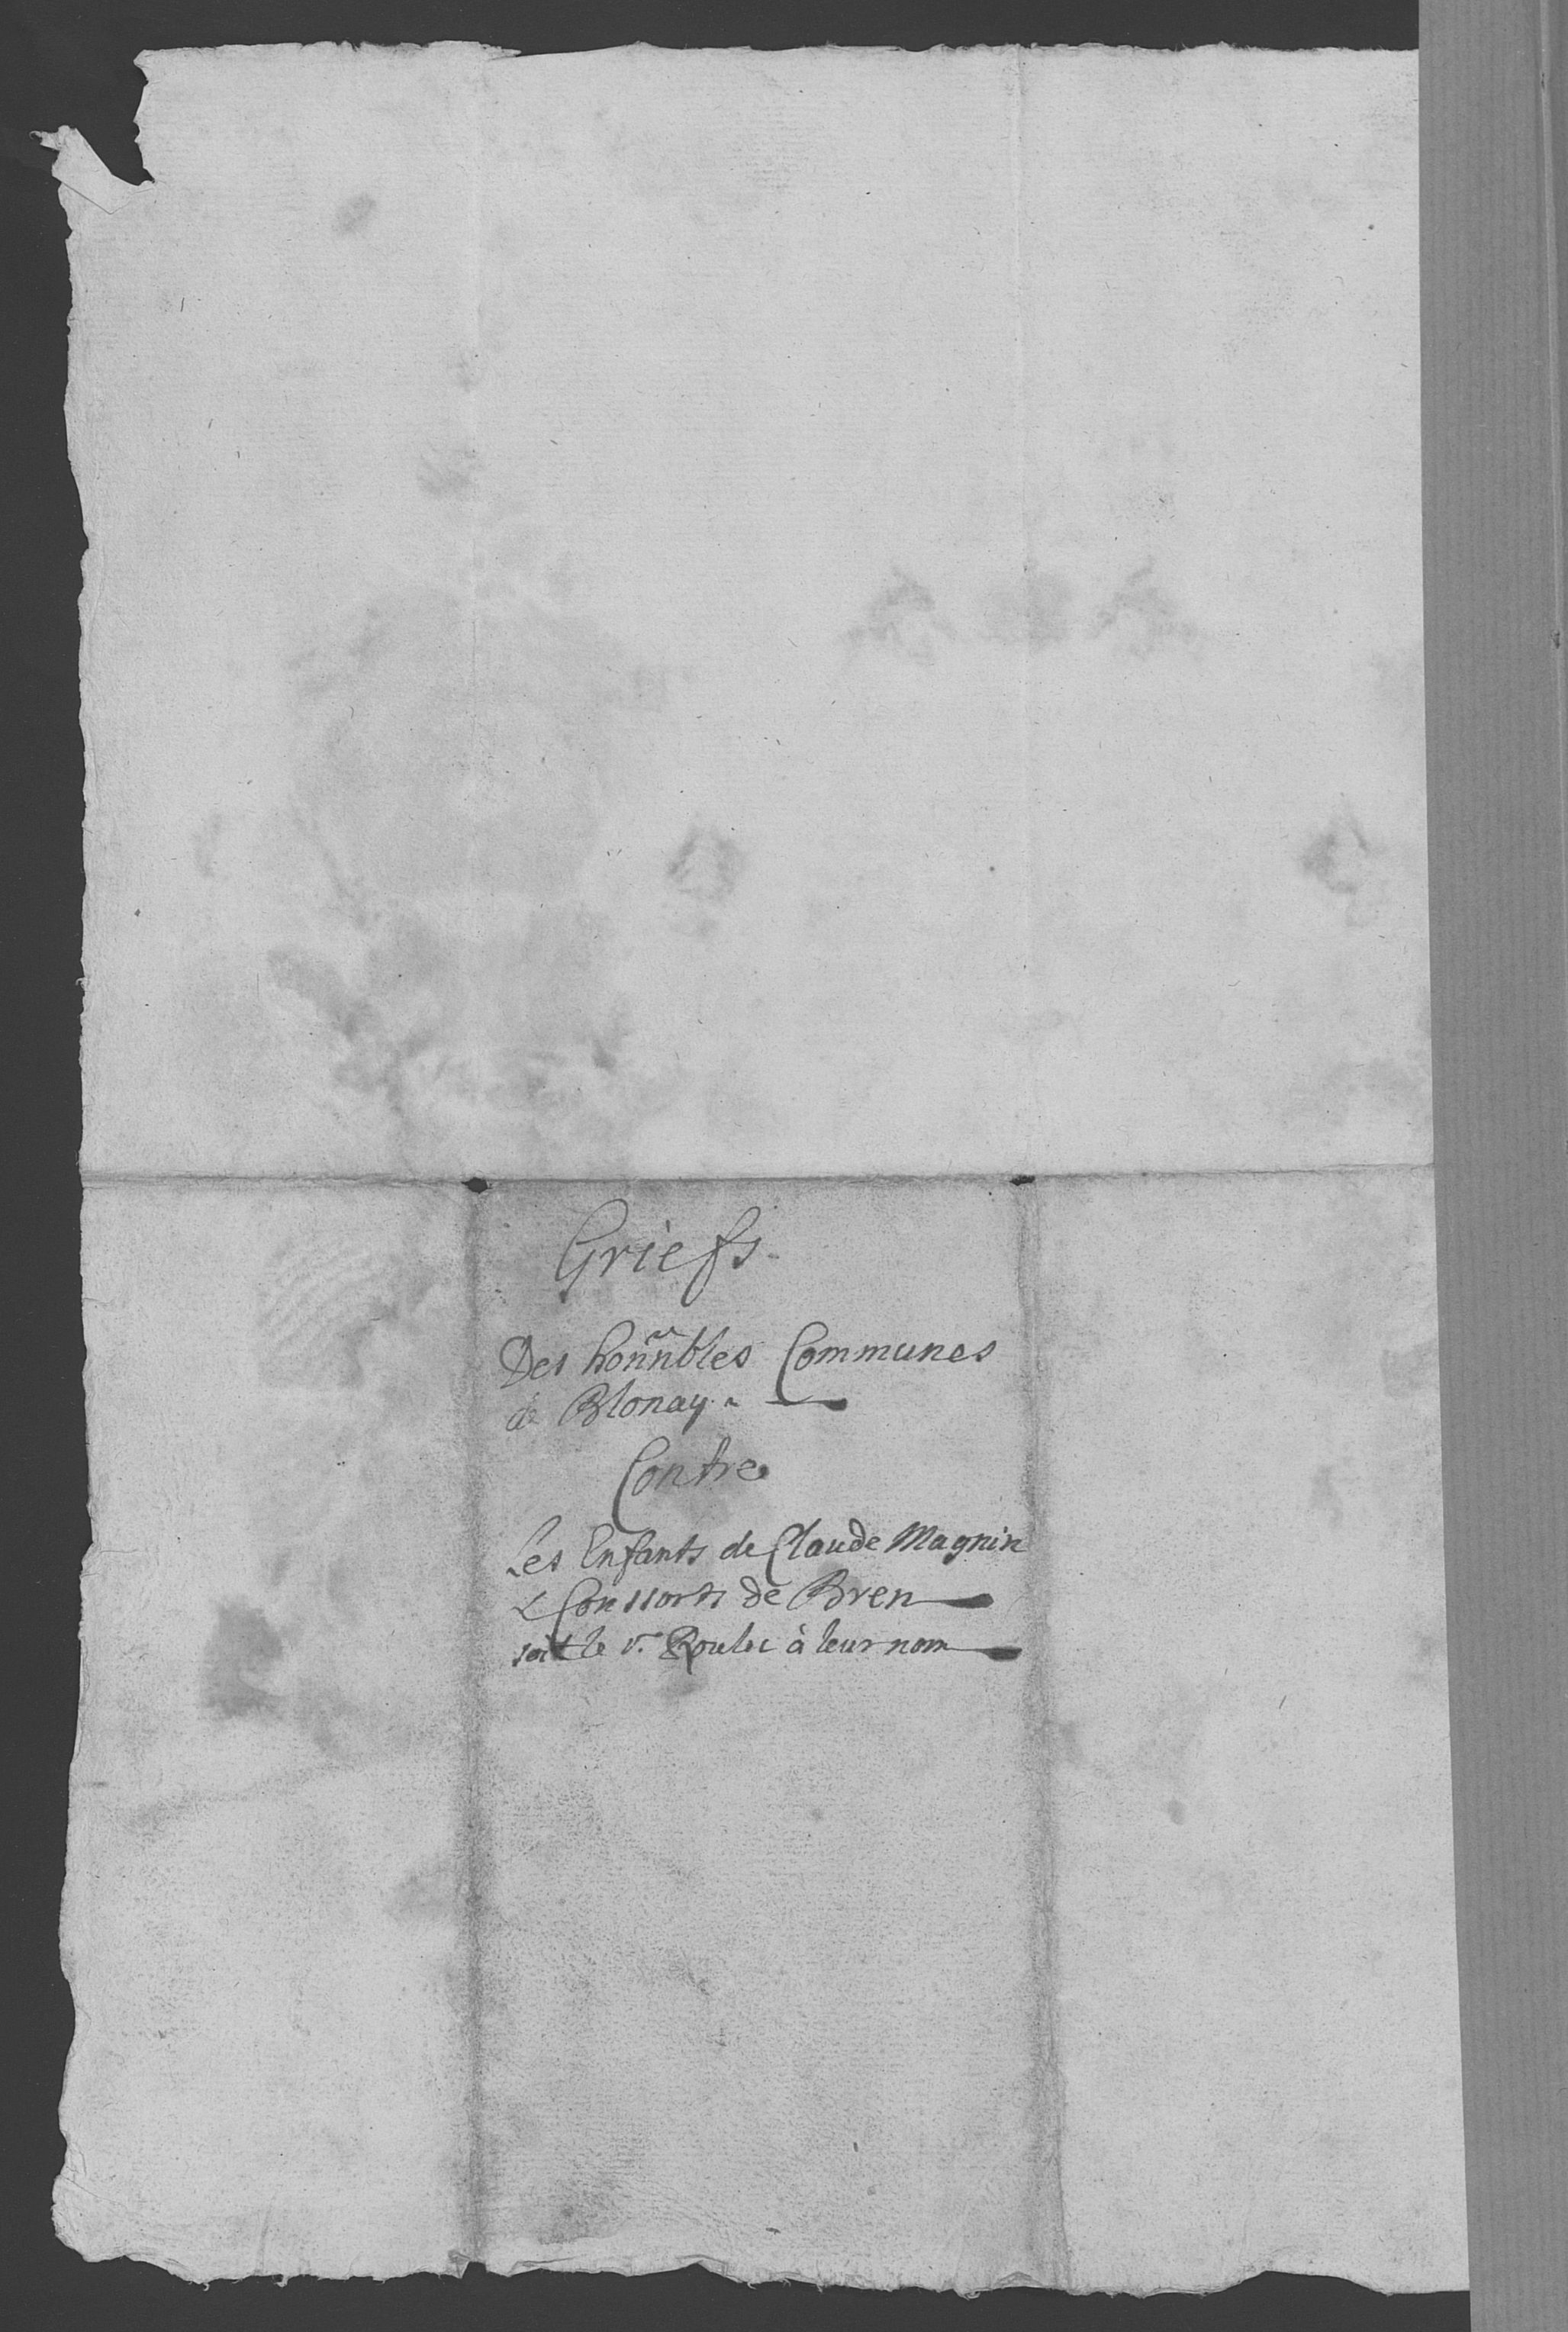 Griefs
Des honn͠bles Communes
de Blonay.
Contre
Les Enfants de Claude Magnin
& Conssorts de Bren
soit le sr. à leur nom